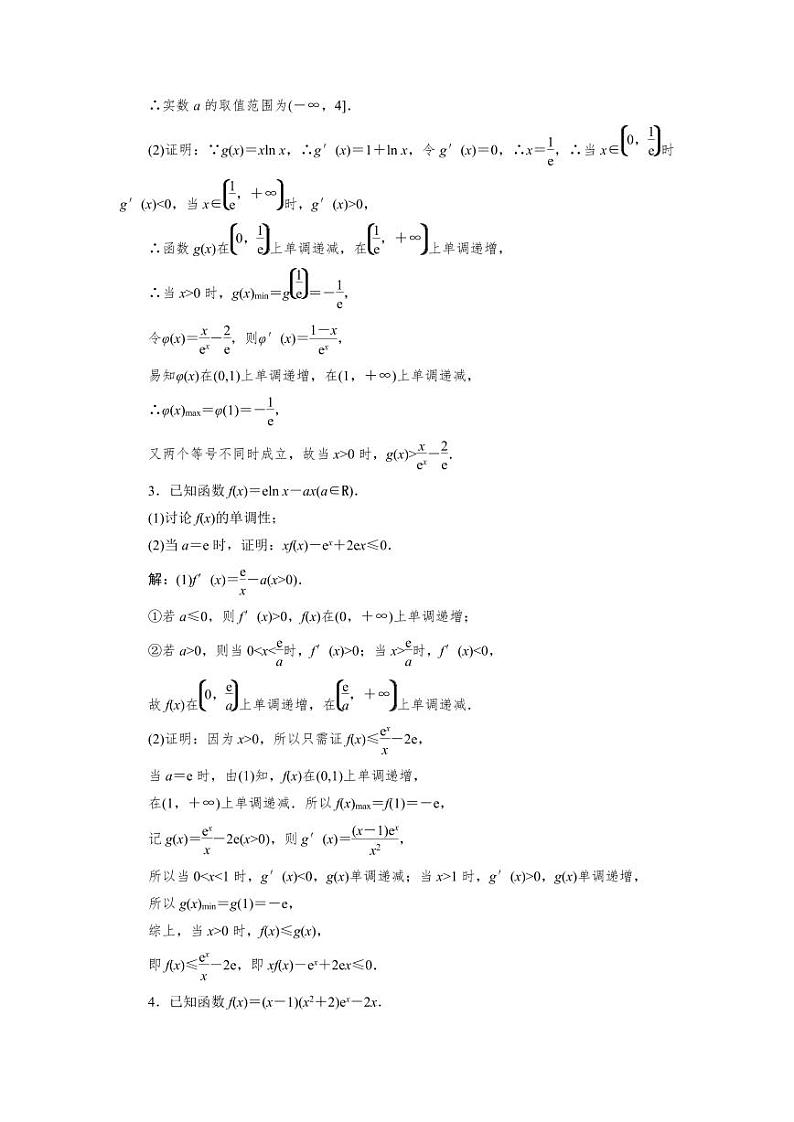 ∴实数 a 的取值范围为(-∞，4].
(2)证明：∵g(x)=xln x，∴g′(x)=1+ln x，令 g′(x)=0，∴x=1/e，∴当 x∈(0，1/e)时
g′(x)<0，当 x∈(1/e，+∞)时，g′(x)>0，
∴函数 g(x)在(0，1/e)上单调递减，在(1/e，+∞)上单调递增，
∴当 x>0 时，g(x)min=g(1/e)=-1/e，
令φ(x)=x/eˣ-2/e，则φ′(x)=(1-x)/eˣ，
易知φ(x)在(0,1)上单调递增，在(1，+∞)上单调递减，
∴φ(x)max=φ(1)=-1/e，
又两个等号不同时成立，故当 x>0 时，g(x)>x/eˣ-2/e.
3．已知函数 f(x)=eln x-ax(a∈R).
(1)讨论 f(x)的单调性；
(2)当 a=e 时，证明：xf(x)-eˣ+2ex≤0.
解：(1)f′(x)=e/x-a(x>0).
①若 a≤0，则 f′(x)>0，f(x)在(0，+∞)上单调递增；
②若 a>0，则当 0<x<e/a时，f′(x)>0；当 x>e/a时，f′(x)<0，
故 f(x)在(0，e/a)上单调递增，在(e/a，+∞)上单调递减.
(2)证明：因为 x>0，所以只需证 f(x)≤eˣ/x-2e，
当 a=e 时，由(1)知，f(x)在(0,1)上单调递增，
在(1，+∞)上单调递减．所以 f(x)max=f(1)=-e，
记 g(x)=eˣ/x-2e(x>0)，则 g′(x)=(x-1)eˣ/x²，
所以当 0<x<1 时，g′(x)<0，g(x)单调递减；当 x>1 时，g′(x)>0，g(x)单调递增，
所以 g(x)min=g(1)=-e，
综上，当 x>0 时，f(x)≤g(x)，
即 f(x)≤eˣ/x-2e，即 xf(x)-eˣ+2ex≤0.
4．已知函数 f(x)=(x-1)(x²+2)eˣ-2x.